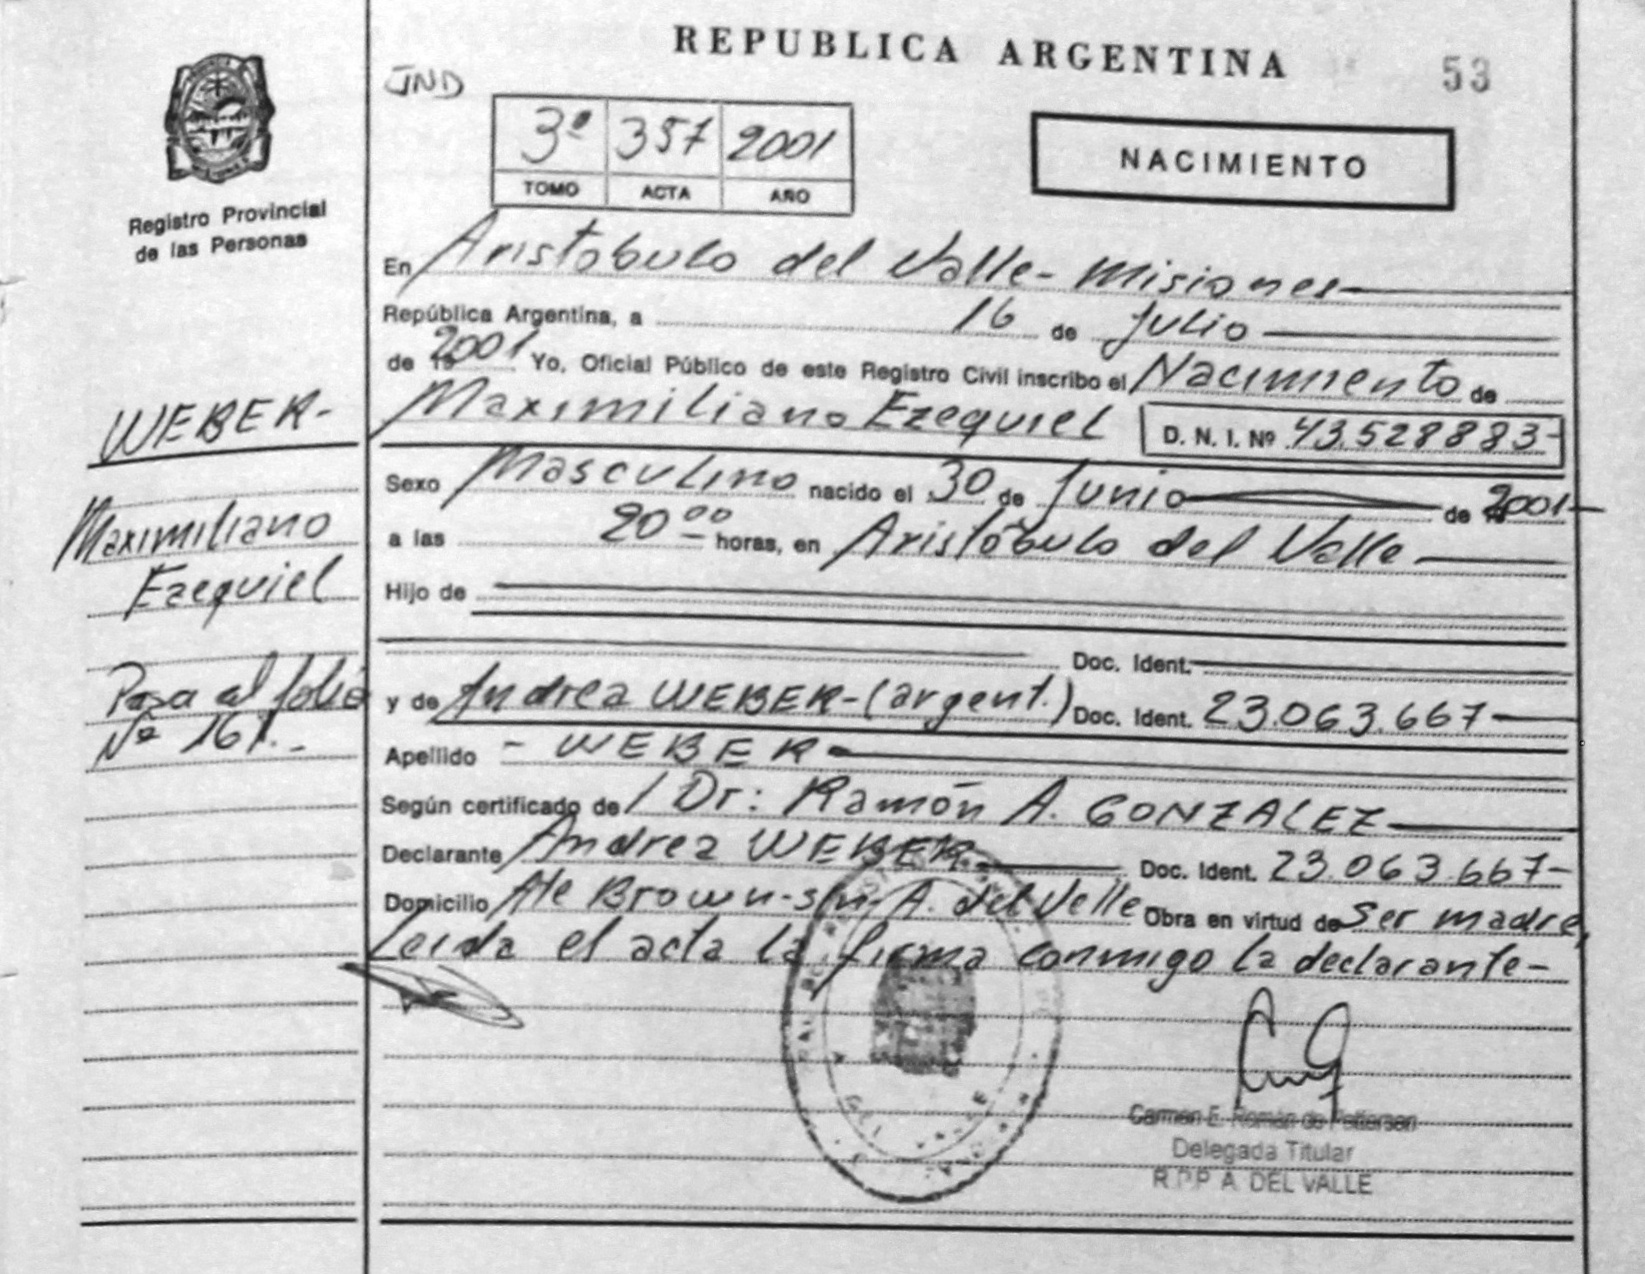 REPUBLICA ARGENTINA
53
JND
3º 357 2001
TOMO ACTA AÑO
NACIMIENTO
Registro Provincial
de las Personas
En Aristobulo del Valle - Misiones
República Argentina, a 16 de Julio
de 2001 Yo, Oficial Público de este Registro Civil inscribo el Nacimiento de
Maximiliano Ezequiel D. N. I. Nº 43.528883-
WEBER-
Maximiliano
Ezequiel
Pasa al folio
Nº 161.-
Sexo Masculino nacido el 30 de Junio de 2001-
a las 20 00 horas, en Aristóbulo del Valle
Hijo de
Doc. Ident.
y de Andrea WEBER-(argent.) Doc. Ident. 23.063.667-
Apellido - WEBER
Según certificado de Dr: Ramón A. GONZALEZ
Declarante Andrea WEBER Doc. Ident. 23.063.667-
Domicilio Ate Brown-s/n- A. del Valle Obra en virtud de ser madre,
Leída el acta la firma conmigo la declarante-
Carmen E. Román de
Delegada Titular
R.P.P A. DEL VALLE